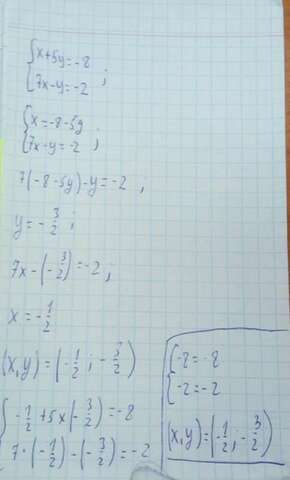 {x+5y=-8
{7x-y=-2 ;
{x=-8-5y
{7x-y=-2 ;
7(-8-5y)-y=-2 ,
y=-3/2 ;
7x-(-3/2)=-2 ;
x=-1/2
(x,y)=(-1/2 ; -3/2)
{-1/2+5x(-3/2)=-8
{7·(-1/2)-(-3/2)=-2
{-8=-8
{-2=-2
(x,y)=(-1/2 ; -3/2)